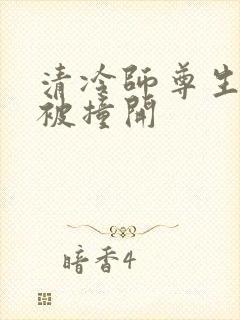 清冷師尊生
被撞開
暗香4